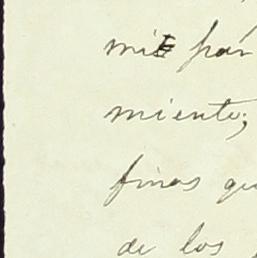 mis pár
miento;
finos qu
de los